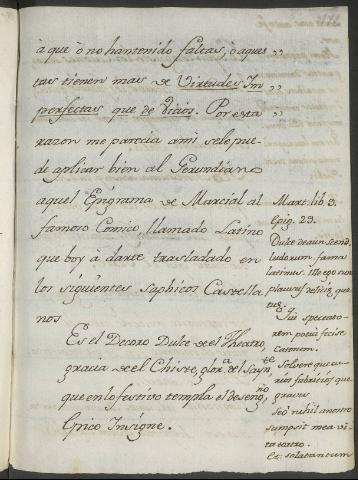 à que ó no han tenido faltas, ó aques ,,
tas tienen mas de Virtudes Im ,,
perfectas que de Vicios. Por esta
razon me parecia a mi se le pue-
de aplicar bien al Gerundiano
aquel Epigrama de Marcial al
famoso Comico, llamado Latino
que boy à darte trasladado en
los siguientes Saphicos Castella
nos
Es el Decoro Dulce de el Theatro,
gracia de el Chiste, glor.a del Sayn.te
que en lo festivo templa el deseng.ño
Epico Insigne.
Mart. lib. 9.
Epig. 29.
Dulce decus scenæ
ludorum fama
latinus. Ille ego sum
plausus deliciæ que
tuæ.
Qui spectato
rem potui fecisse
Catonem.
Solvere qui cu-
rios fabricios que
graves
Sed nihil a nostro
sumpsit mea vi-
ta teatro.
Et sola tantum